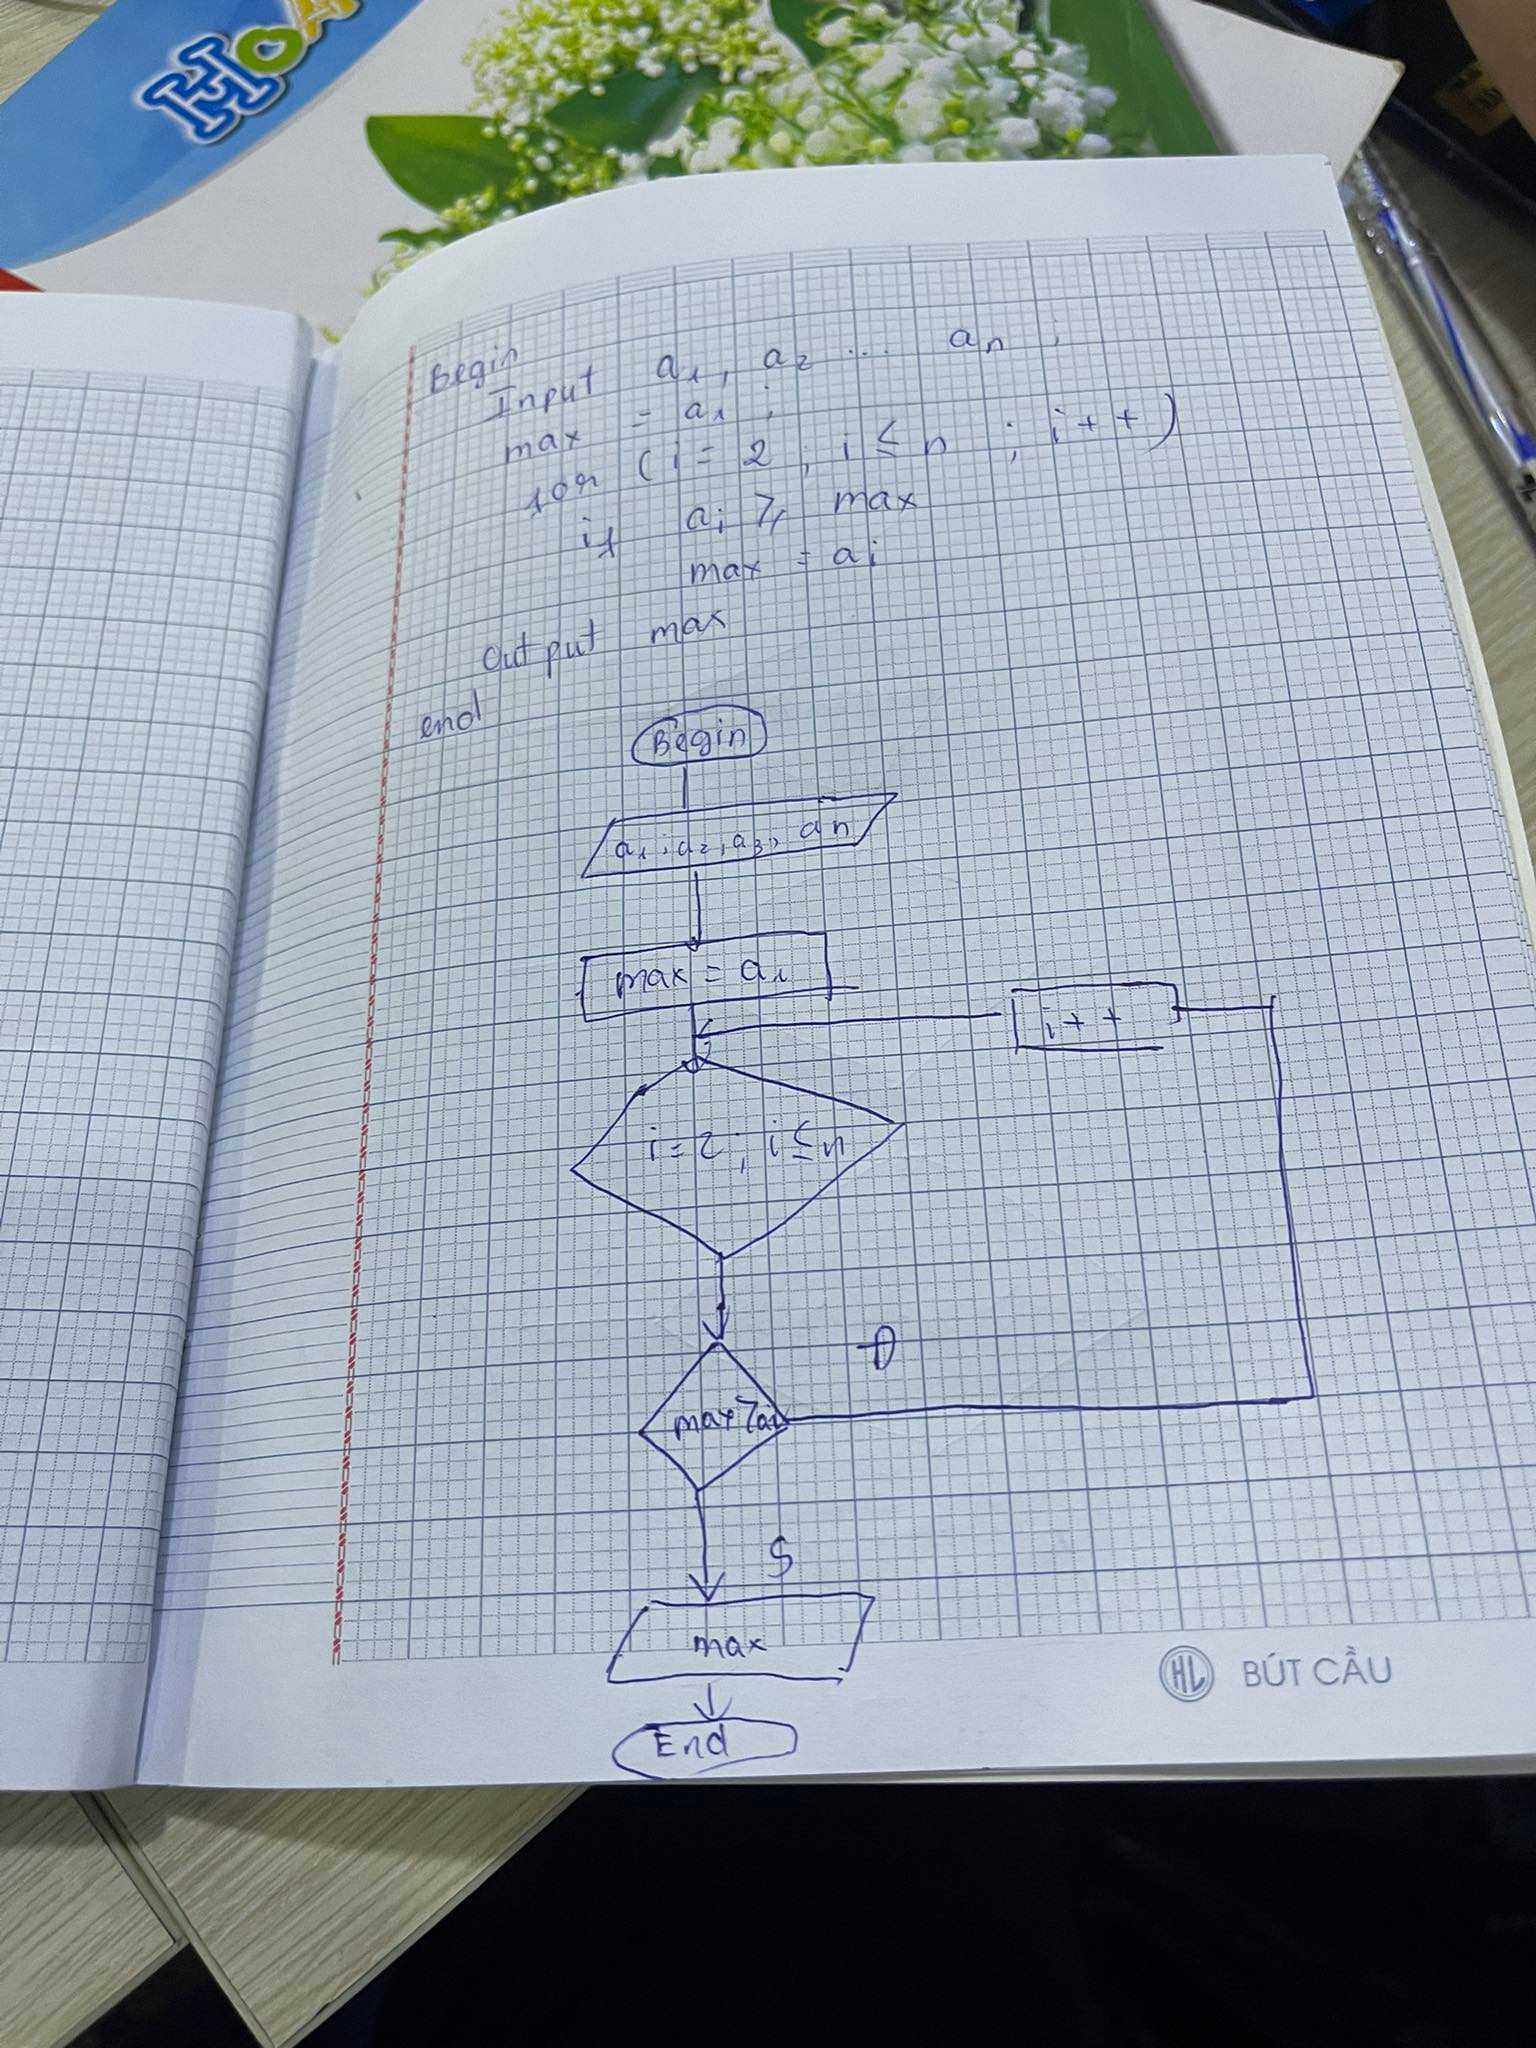 HOA
Begin
Input a₁, a₂ ... aₙ ;
max = a₁ ;
for (i = 2 ; i ≤ n ; i++)
if aᵢ ≥ max
max = aᵢ
Output max
end
Begin
a₁, a₂, a₃, aₙ
max = a₁
i++
i = 2 ; i ≤ n
Đ
max ≥ aᵢ
S
max
End
HL BÚT CẦU